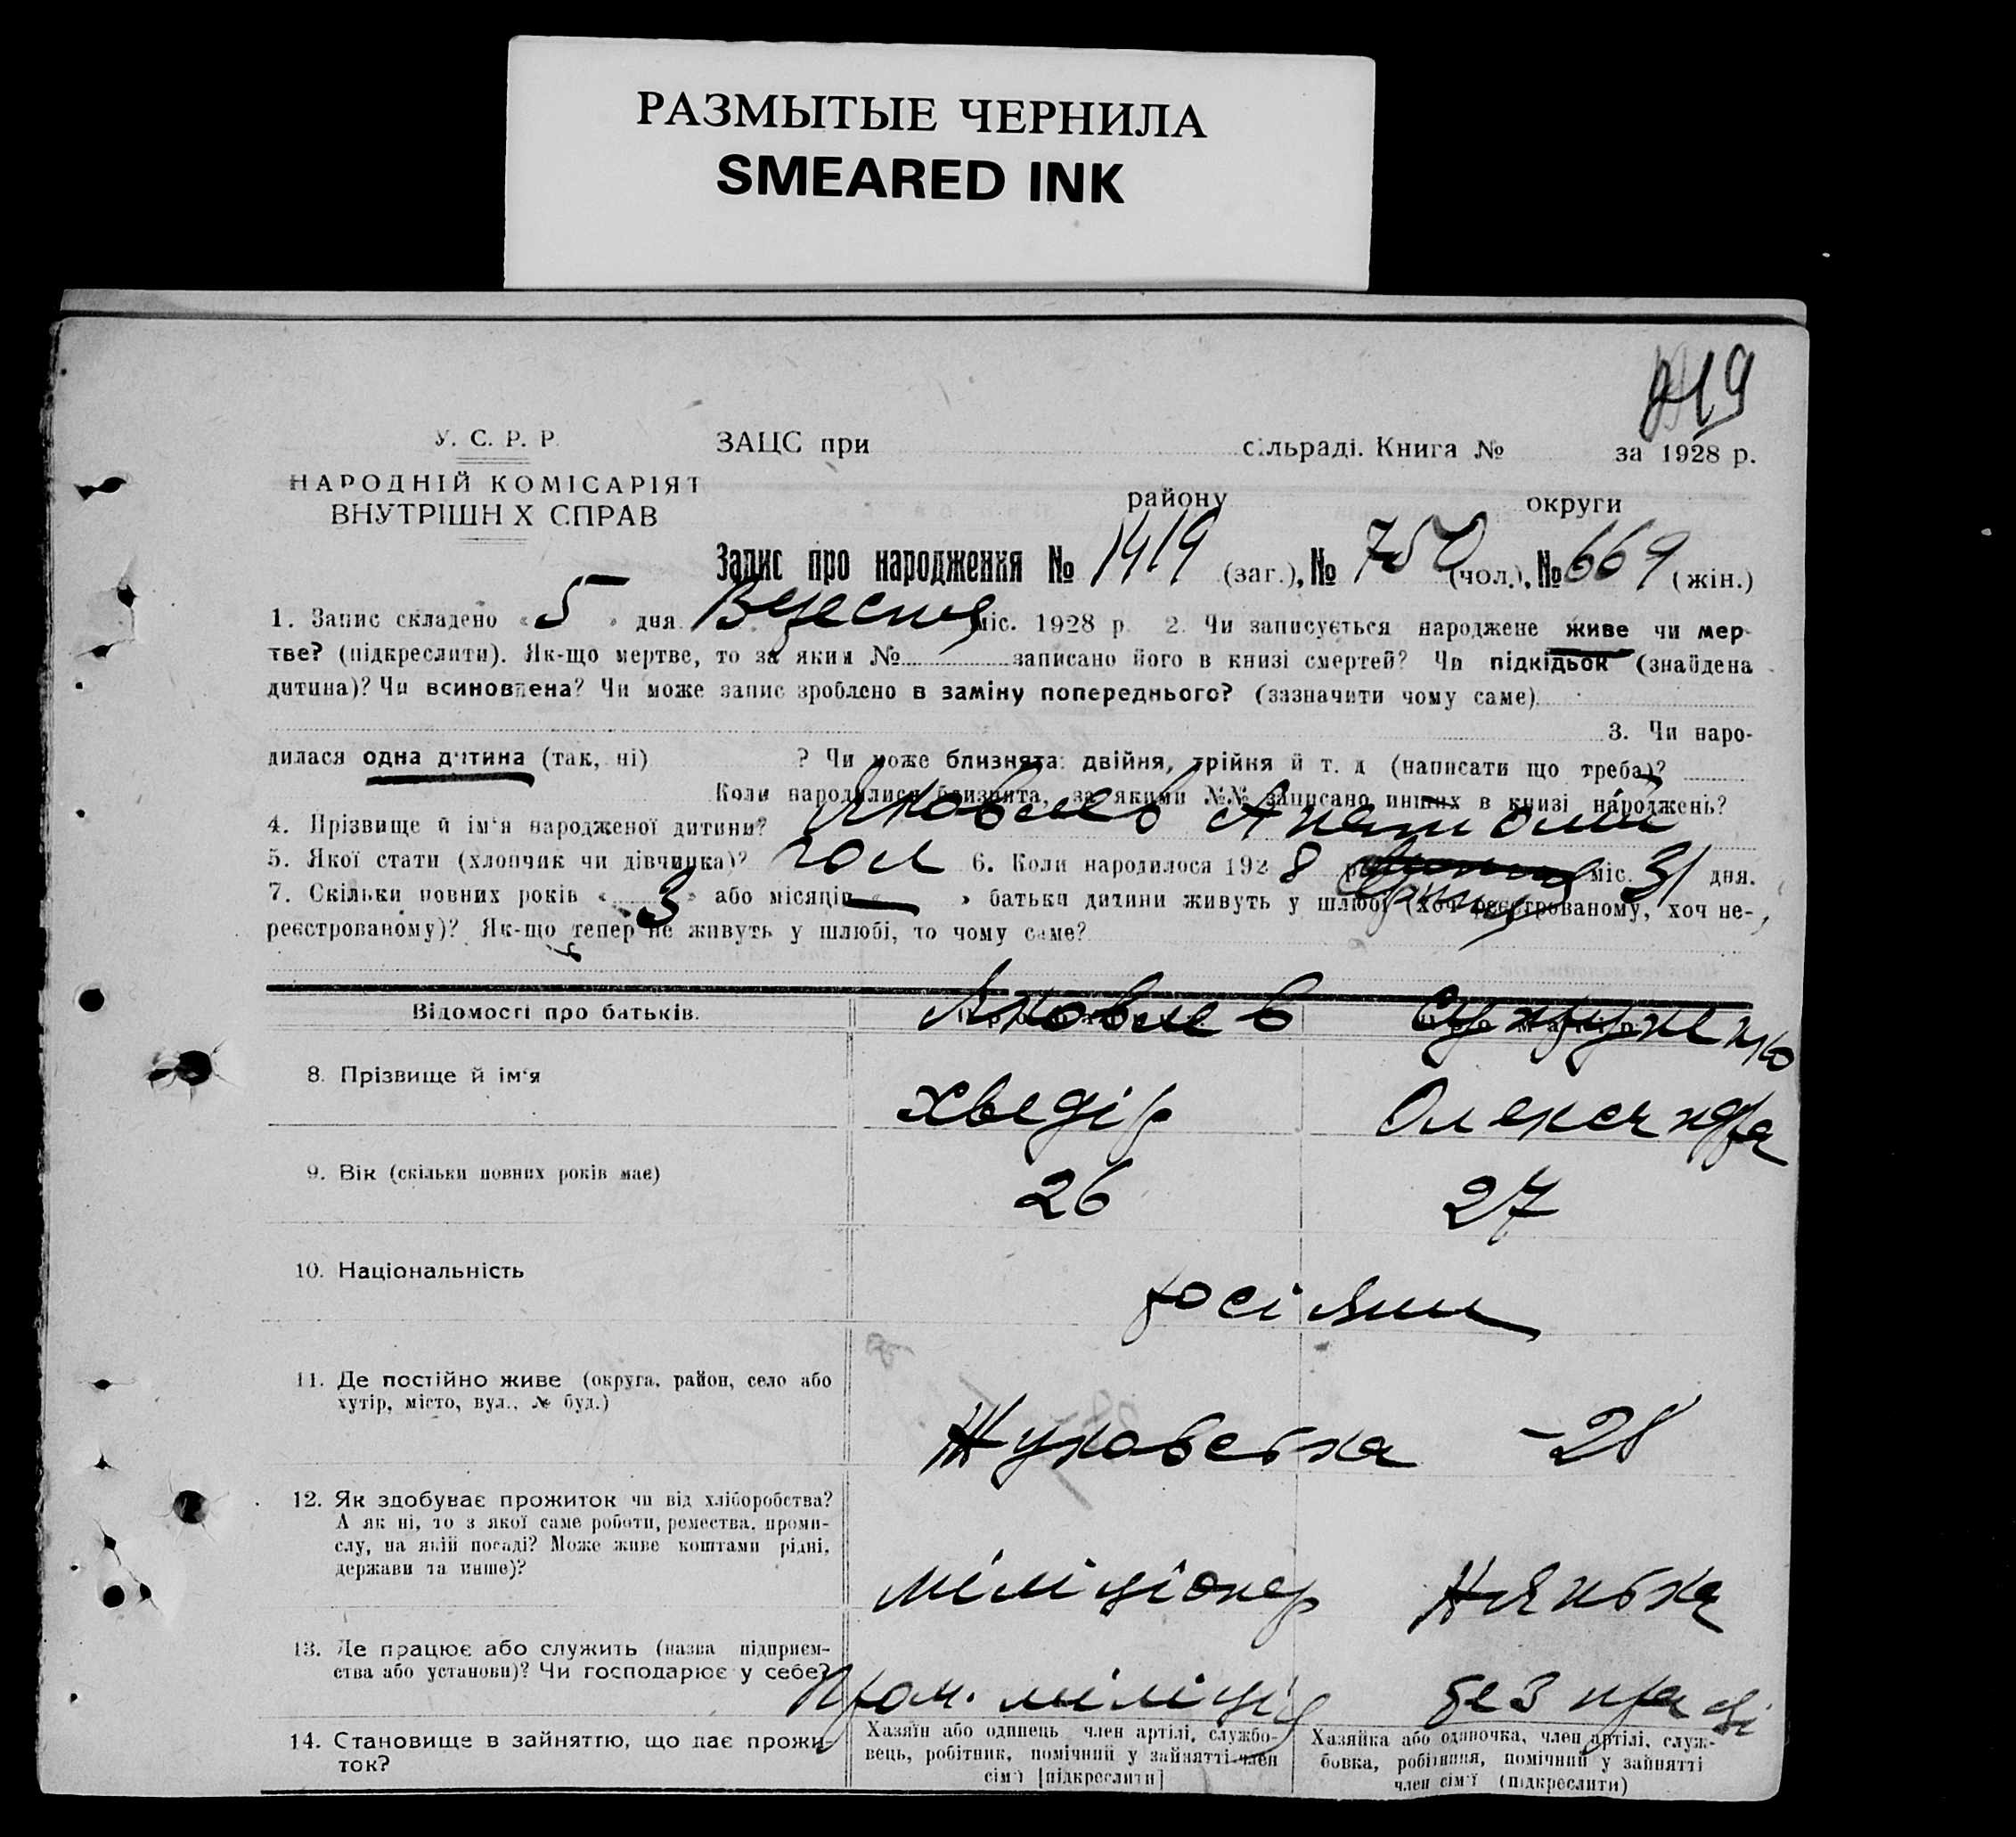 РАЗМЫТЫЕ ЧЕРНИЛА
SMEARED INK
У. С. Р. Р.
НАРОДНІЙ КОМІСАРІЯТ
ВНУТРІШН Х СПРАВ
ЗАЦС при сільраді. Книга № за 1928 р.
району округи
Запис про народження № 1419 (заг.), № 750 (чол.), № 669 (жін.)
1. Запис складено « 5 » дня Вересня міс. 1928 р. 2. Чи записується народжене живе чи мер-
тве? (підкреслити). Як-що мертве, то за яким № записано його в книзі смертей? Чи підкідьок (знайдена
дитина)? Чи всиновлена? Чи може запис зроблено в заміну попереднього? (зазначити чому саме)
3. Чи наро-
дилася одна дитина (так, ні) ? Чи може близнята: двійня, трійня й т. д (написати що треба)?
Коли народилися близнята, за якими №№ записано инших в книзі народжень?
4. Прізвище й ім‘я народженої дитини? Яковлев Анатолій
5. Якої стати (хлопчик чи дівчинка)? чол 6. Коли народилося 192 8 р. Серпня міс. 31 дня.
7. Скільки повних років « 3 » або місяців « — » батьки дитини живуть у шлюбі (хоч реєстрованому, хоч не-
реєстрованому)? Як-що тепер не живуть у шлюбі, то чому саме?
Відомості про батьків.
8. Прізвище й ім‘я Яковлев
Хведір Олександра
9. Вік (скільки повних років має) 26 27
10. Національність росіяни
11. Де постійно живе (округа, район, село або
хутір, місто, вул., № буд.) Жуковська - 28
12. Як здобуває прожиток чи від хліборобства?
А як ні, то з якої саме роботи, ремества, проми-
слу, на якій посаді? Може живе коштами рідні,
держави та инше)? міліціонер Нянька
13. Де працює або служить (назва підприєм-
ства або установи)? Чи господарює у себе? Пром. міліція без праці
14. Становище в зайняттю, що дає прожи-
ток?
Хазяїн або одинець член артілі, службо-
вець, робітник, помічний у зайнятті член
сім‘ї [підкреслити]
Хазяйка або одиночка, член артілі, служ-
бовка, робітниця, помічний у зайнятті
член сім‘ї (підкреслити)